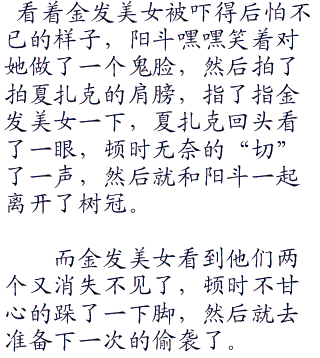 看着金发美女被吓得后怕不
已的样子，阳斗嘿嘿笑着对
她做了一个鬼脸，然后拍了
拍夏扎克的肩膀，指了指金
发美女一下，夏扎克回头看
了一眼，顿时无奈的“切”
了一声，然后就和阳斗一起
离开了树冠。
而金发美女看到他们两
个又消失不见了，顿时不甘
心的跺了一下脚，然后就去
准备下一次的偷袭了。